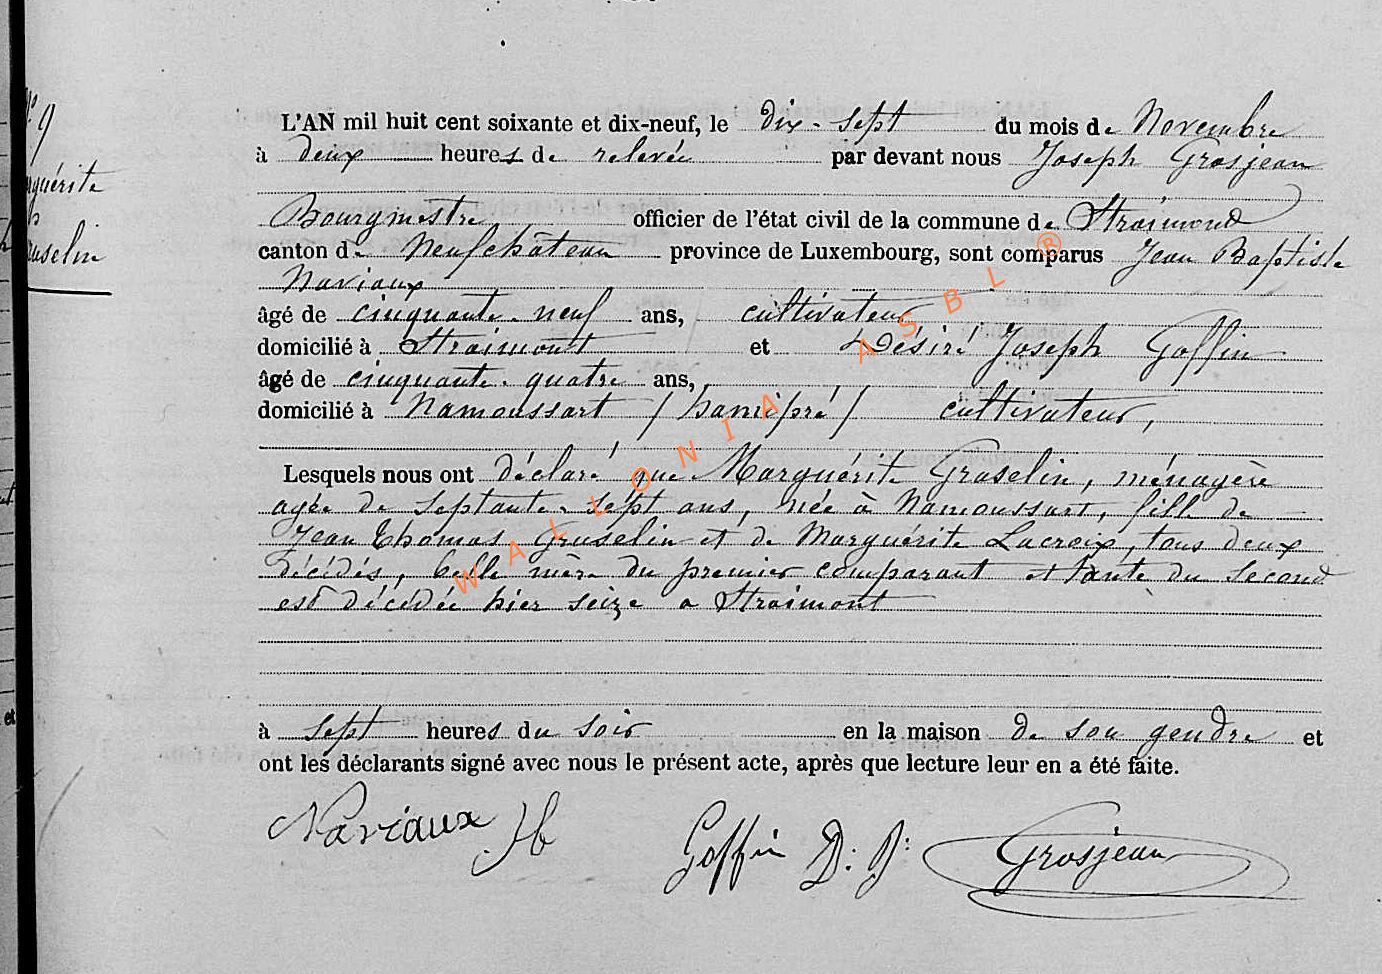 N° 9
guérite
uselin
L'AN mil huit cent soixante et dix-neuf, le dix-sept du mois de Novembre
à deux heures de relevée par devant nous Joseph Grosjean
Bourgmestre officier de l'état civil de la commune de Straimond
canton de Neufchâteau province de Luxembourg, sont comparus Jean Baptiste
Naviaux
âgé de cinquante-neuf ans, cultivateur
domicilié à Straimont et Désiré Joseph Goffin
âgé de cinquante-quatre ans,
domicilié à Namoussart / hamipré / cultivateur,
Lesquels nous ont déclaré que Marguérite Gruselin, ménagère
agée de septante-sépt ans, née à Namoussart, fille de
Jean Thomas Gruselin et de Marguérite Lacroix, tous deux
décédés, belle mère du premier comparant et tante du second
est décédée hier seize a Straimont
à sept heures du soir en la maison de son gendre et
ont les déclarants signé avec nous le présent acte, après que lecture leur en a été faite.
Naviaux Goffin D: J: Grosjean
WALLONIA ASBL ®